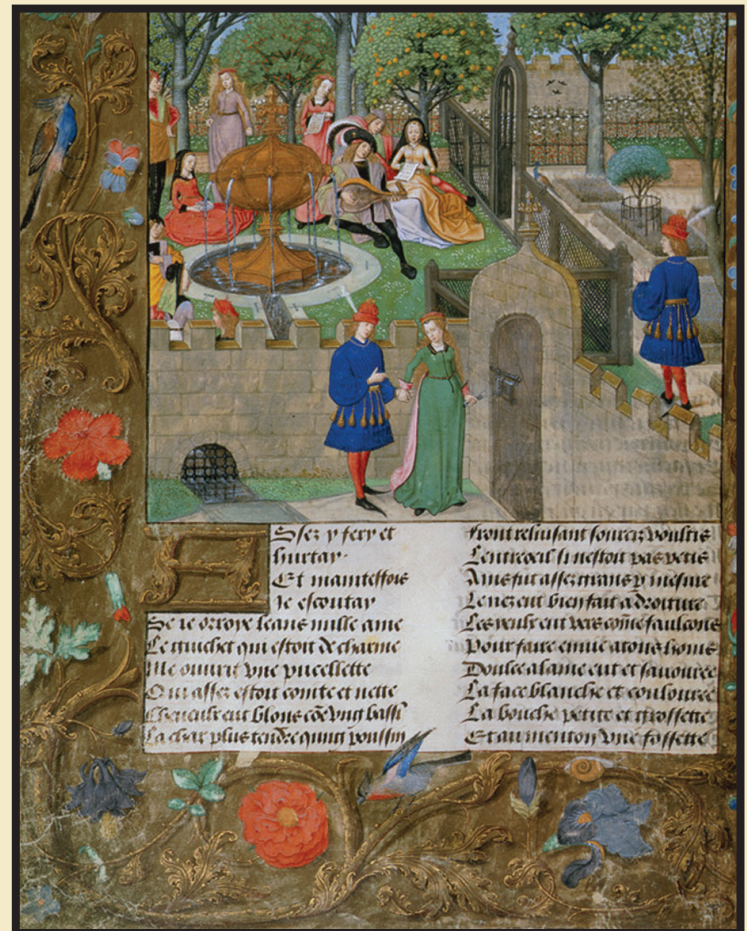 Assez y fery et
hurtay
Et maintesfois
ie escoutay
Se ie orroye leans nulle ame
Le guichet qui estoit de charme
Me ouurit vne pucellette
Qui assez estoit cointe et nette
Cheueulx eut blons cõe vng bassĩ
La char plus tendre quung poussin
Front reluisant sourcis voultis
Lentreoeil si nestoit pas petis
Ains fut assez grans p mesure
Le nez eut bien fait a droiture
Les yeulx eut vers cõme faulcons
Pour faire enuie a tous homs
Doulce alaine eut et sauouree
La face blanche et coulouree
La bouche petite et grossette
Et au menton vne fossette